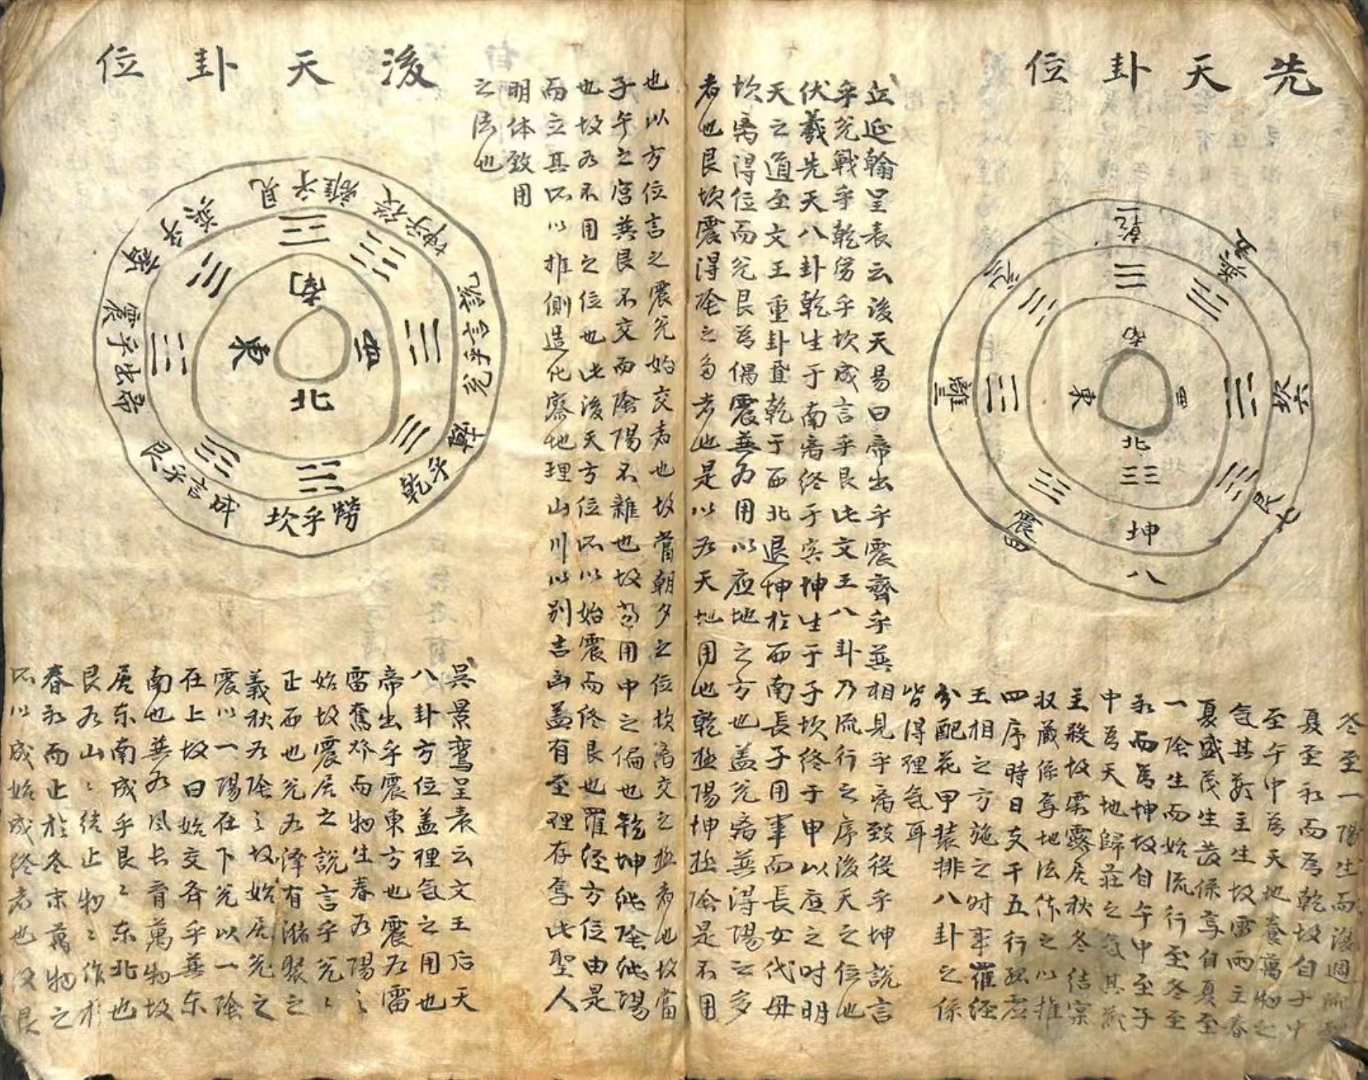 先天卦位
乾一
兌二
離三
震四
巽五
坎六
艮七
坤
八
南
東
西
北
冬至一陽生而後週
夏至永而為乾故自子中
至午中為天地養萬物之
氣其於主生故雷雨主春
夏盛茂生發係享自夏至
一陰生而始流行至冬至
永而為坤故自午中至子
中為天地歸莊之氣其
主殺故霜露居秋冬結宗
収藏係享地法作之以推
四序時日支干五行孤虛
王相之方施之时事羅經
分配花甲裝排八卦之係
皆得理氣耳
立延翰呈表云後天易曰帝出乎震齊乎巽相見乎离致役乎坤說言
乎兌戰乎乾勞乎坎成言乎艮此文王八卦乃流行之序後天之位也
伏羲先天八卦乾生于南离終于寅坤生于子坎終于申以应之时明
天之道至文王重卦置乾于西北退坤於西南長子用事而長女代母
坎离得位而兌艮為偶震巽为用以应地之方也盖兌离巽得陽之多
者也艮坎震得陰之多者也是以为天地用也乾極陽坤極陰是不用
也以方位言之震兌始交者也故當朝夕之位坎离交之極者也故當
子午之宮巽艮不交而陰陽不雜也故用中之偏也乾坤純陰純陽
也故为不用之位也此後天方位所以始震而終艮也羅経方位由是
而立其所以推側造化審地理山川以别吉凶盖有至理存奪此聖人
明体致用
之法也
後天卦位
離乎見
坤乎役
兌乎言說
乾乎戰
坎乎勞
艮乎言成
震乎出帝
巽乎齊
南
東
西
北
吳景鸞呈表云文王后天
八卦方位盖裡氣之用也
帝出乎震東方也震为雷
雷奮邓而物生春为陽之
始故震居之說言乎兌兌
正西也兌为泽有潴聚之
義秋为陰之故始居兌之
震以一陽在下兌以一陰
在上故曰始交斉乎巽东
南也巽为風长育萬物故
居东南成乎艮艮东北也
艮为山山結止物物作於
春永而止於冬末萬物之
所以成始成終者也又艮